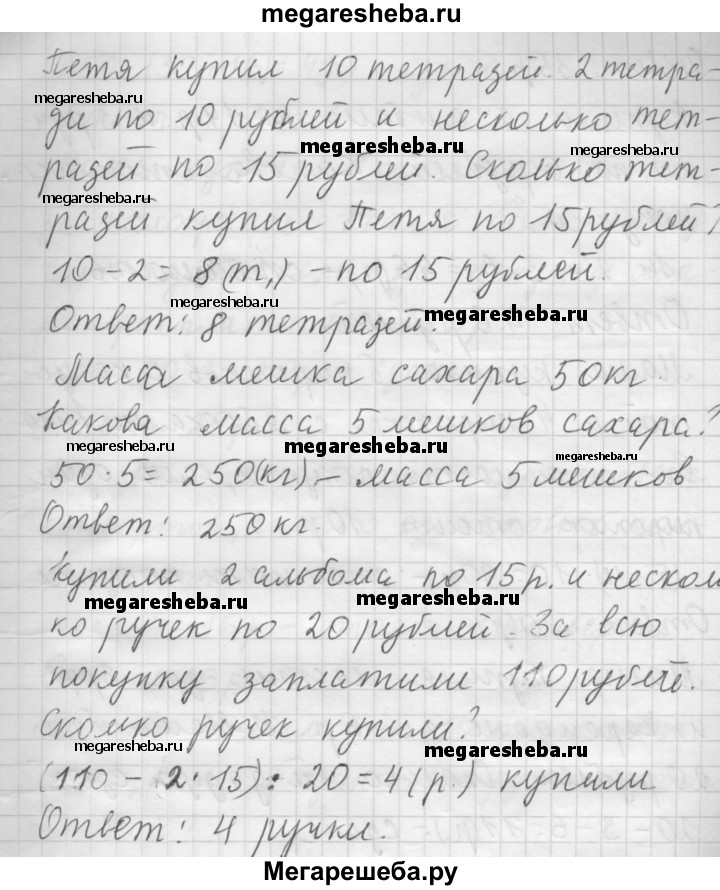 megaresheba.ru
Петя купил 10 тетрадей. 2 тетра-
megaresheba.ru
ди по 10 рублей и несколько тет-
megaresheba.ru
megaresheba.ru
радей по 15 рублей. Сколько тет-
megaresheba.ru
радей купил Петя по 15 рублей?
10 - 2 = 8 (т.) - по 15 рублей.
megaresheba.ru
megaresheba.ru
Ответ: 8 тетрадей.
Масса мешка сахара 50 кг.
Какова масса 5 мешков сахара?
megaresheba.ru
megaresheba.ru
megaresheba.ru
50 · 5 = 250 (кг) - масса 5 мешков
Ответ: 250 кг.
Купили 2 альбома по 15 р. и несколь
megaresheba.ru
megaresheba.ru
ко ручек по 20 рублей. За всю
покупку заплатили 110 рублей.
Сколько ручек купили?
megaresheba.ru
megaresheba.ru
(110 - 2 · 15) : 20 = 4 (р.) купили
Ответ: 4 ручки.
Мегарешеба.ру